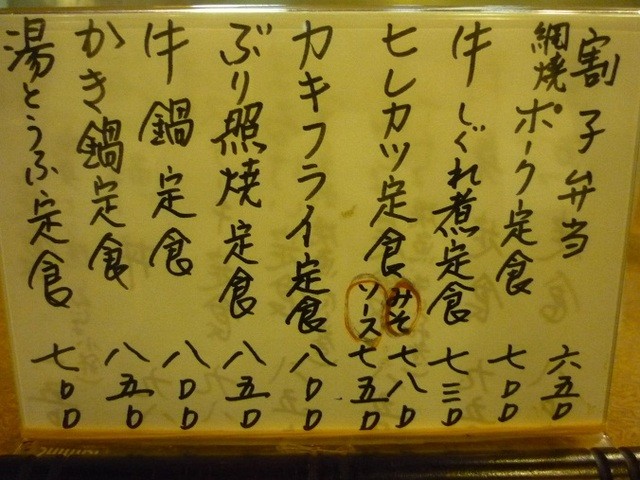 割子弁当 六五〇
網焼ポーク定食 七〇〇
牛しぐれ煮定食 七三〇
ヒレカツ定食 みそ 七八〇
ソース 七五〇
カキフライ定食 八〇〇
ぶり照焼定食 八五〇
牛鍋定食 八〇〇
かき鍋定食 八五〇
湯とうふ定食 七〇〇